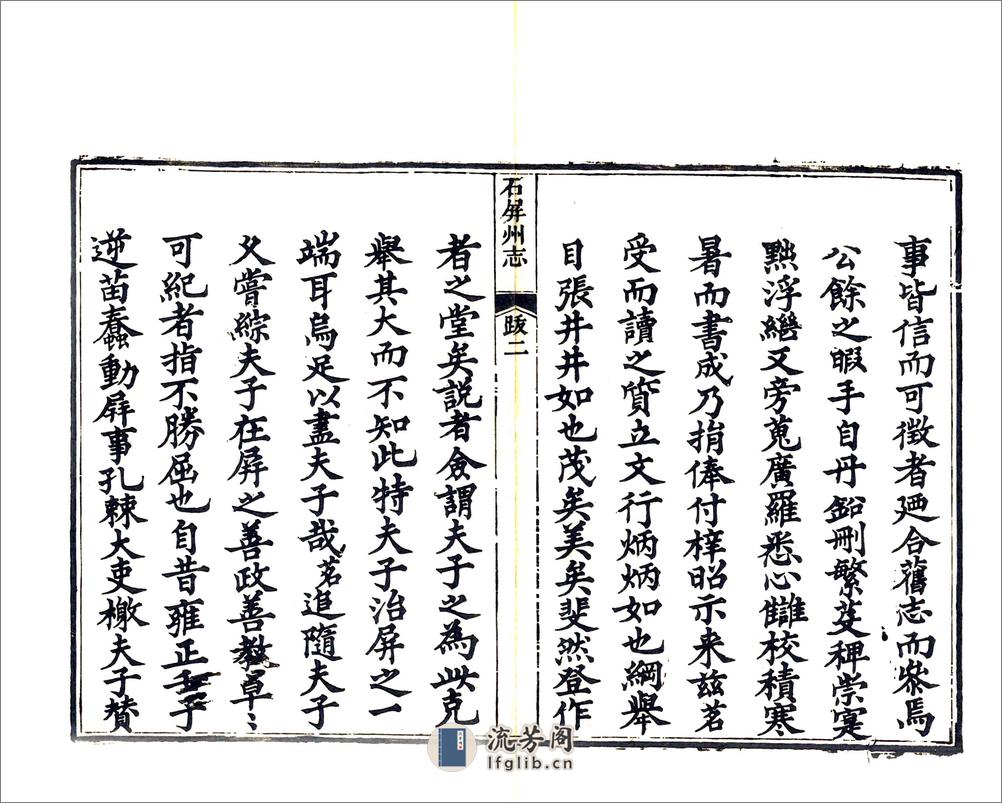 事皆信而可徵者廼合舊志而叅焉
公餘之暇手自丹鉛刪繁芟稗崇寔
黜浮繼又旁蒐廣羅悉心讎校積寒
暑而書成乃捐俸付梓昭示来兹茗
受而讀之質立文行炳炳如也綱舉
目張井井如也茂矣美矣斐然登作
石屏州志
跋二
者之堂矣説者僉謂夫子之為此克
舉其大而不知此特夫子治屏之一
端耳烏足以盡夫子哉茗追隨夫子
久嘗綜夫子在屏之善政善教卓〻
可紀者指不勝屈也自昔雍正壬子
逆苗蠢動屏事孔棘大吏檄夫子賛
流芳阁
lfglib.cn